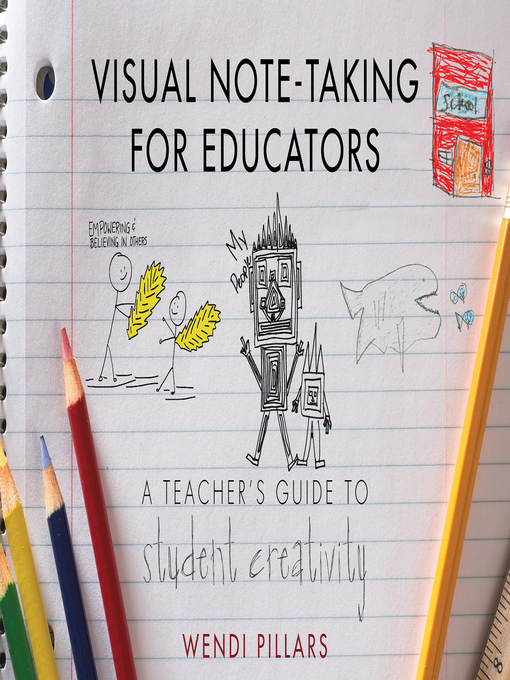 VISUAL NOTE-TAKING
FOR EDUCATORS
School
EMPOWERING &
BELIEVING IN OTHERS
My
People
A TEACHER'S GUIDE TO
student creativity
WENDI PILLARS
8